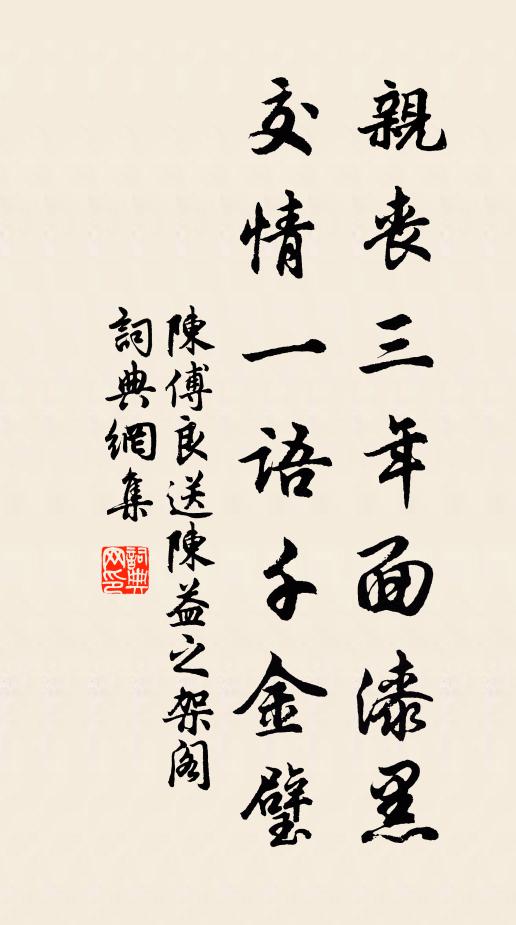 親喪三年面漆黑
交情一語千金璧
陳傅良送陳益之架閣
詞典網集
詞典网印